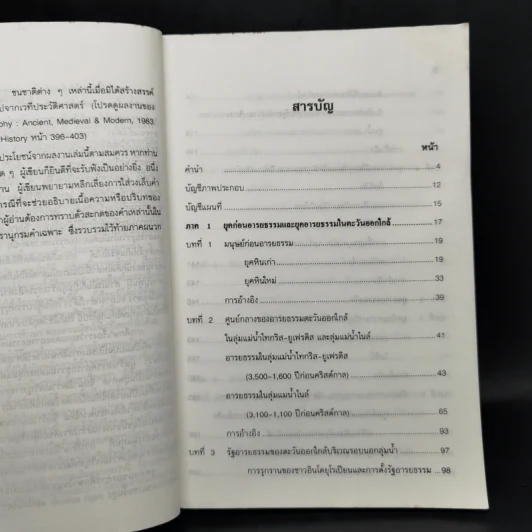 ชนชาติต่าง ๆ เหล่านี้เมื่อมิได้สร้างสรรค์
ปจากเวทีประวัติศาสตร์ (โปรดดูผลงานของ
phy : Ancient, Medieval & Modern, 1963
History หน้า 396-403)
ประโยชน์จากผลงานเล่มนี้ตามสมควร หากท่าน
ด ๆ ผู้เขียนก็ยินดีที่จะรับฟังเป็นอย่างยิ่ง อนึ่ง
าน ผู้เขียนพยายามหลีกเลี่ยงการใส่วงเล็บคำ
ารณีที่จะช่วยอธิบายเนื้อความหรือบริบทของ
าผู้อ่านต้องการทราบตัวสะกดของคำเหล่านั้นใน
รานุกรมคำเฉพาะ ซึ่งรวบรวมไว้ท้ายภาคผนวก
สารบัญ
หน้า
คำนำ 4
บัญชีภาพประกอบ 12
บัญชีแผนที่ 15
ภาค 1 ยุคก่อนอารยธรรมและยุคอารยธรรมในตะวันออกใกล้ 17
บทที่ 1 มนุษย์ก่อนอารยธรรม 19
ยุคหินเก่า 19
ยุคหินใหม่ 33
การอ้างอิง 39
บทที่ 2 ศูนย์กลางของอารยธรรมตะวันออกใกล้
ในลุ่มแม่น้ำไทกริส-ยูเฟรติส และลุ่มแม่น้ำไนล์ 41
อารยธรรมในลุ่มแม่น้ำไทกริส-ยูเฟรติส
(3,500-1,600 ปีก่อนคริสต์กาล) 43
อารยธรรมในลุ่มแม่น้ำไนล์
(3,100-1,100 ปีก่อนคริสต์กาล) 65
การอ้างอิง 93
บทที่ 3 รัฐอารยธรรมของตะวันออกใกล้บริเวณรอบนอกลุ่มน้ำ 97
การรุกรานของชาวอินโดยุโรเปียนและการตั้งรัฐอารยธรรม 98